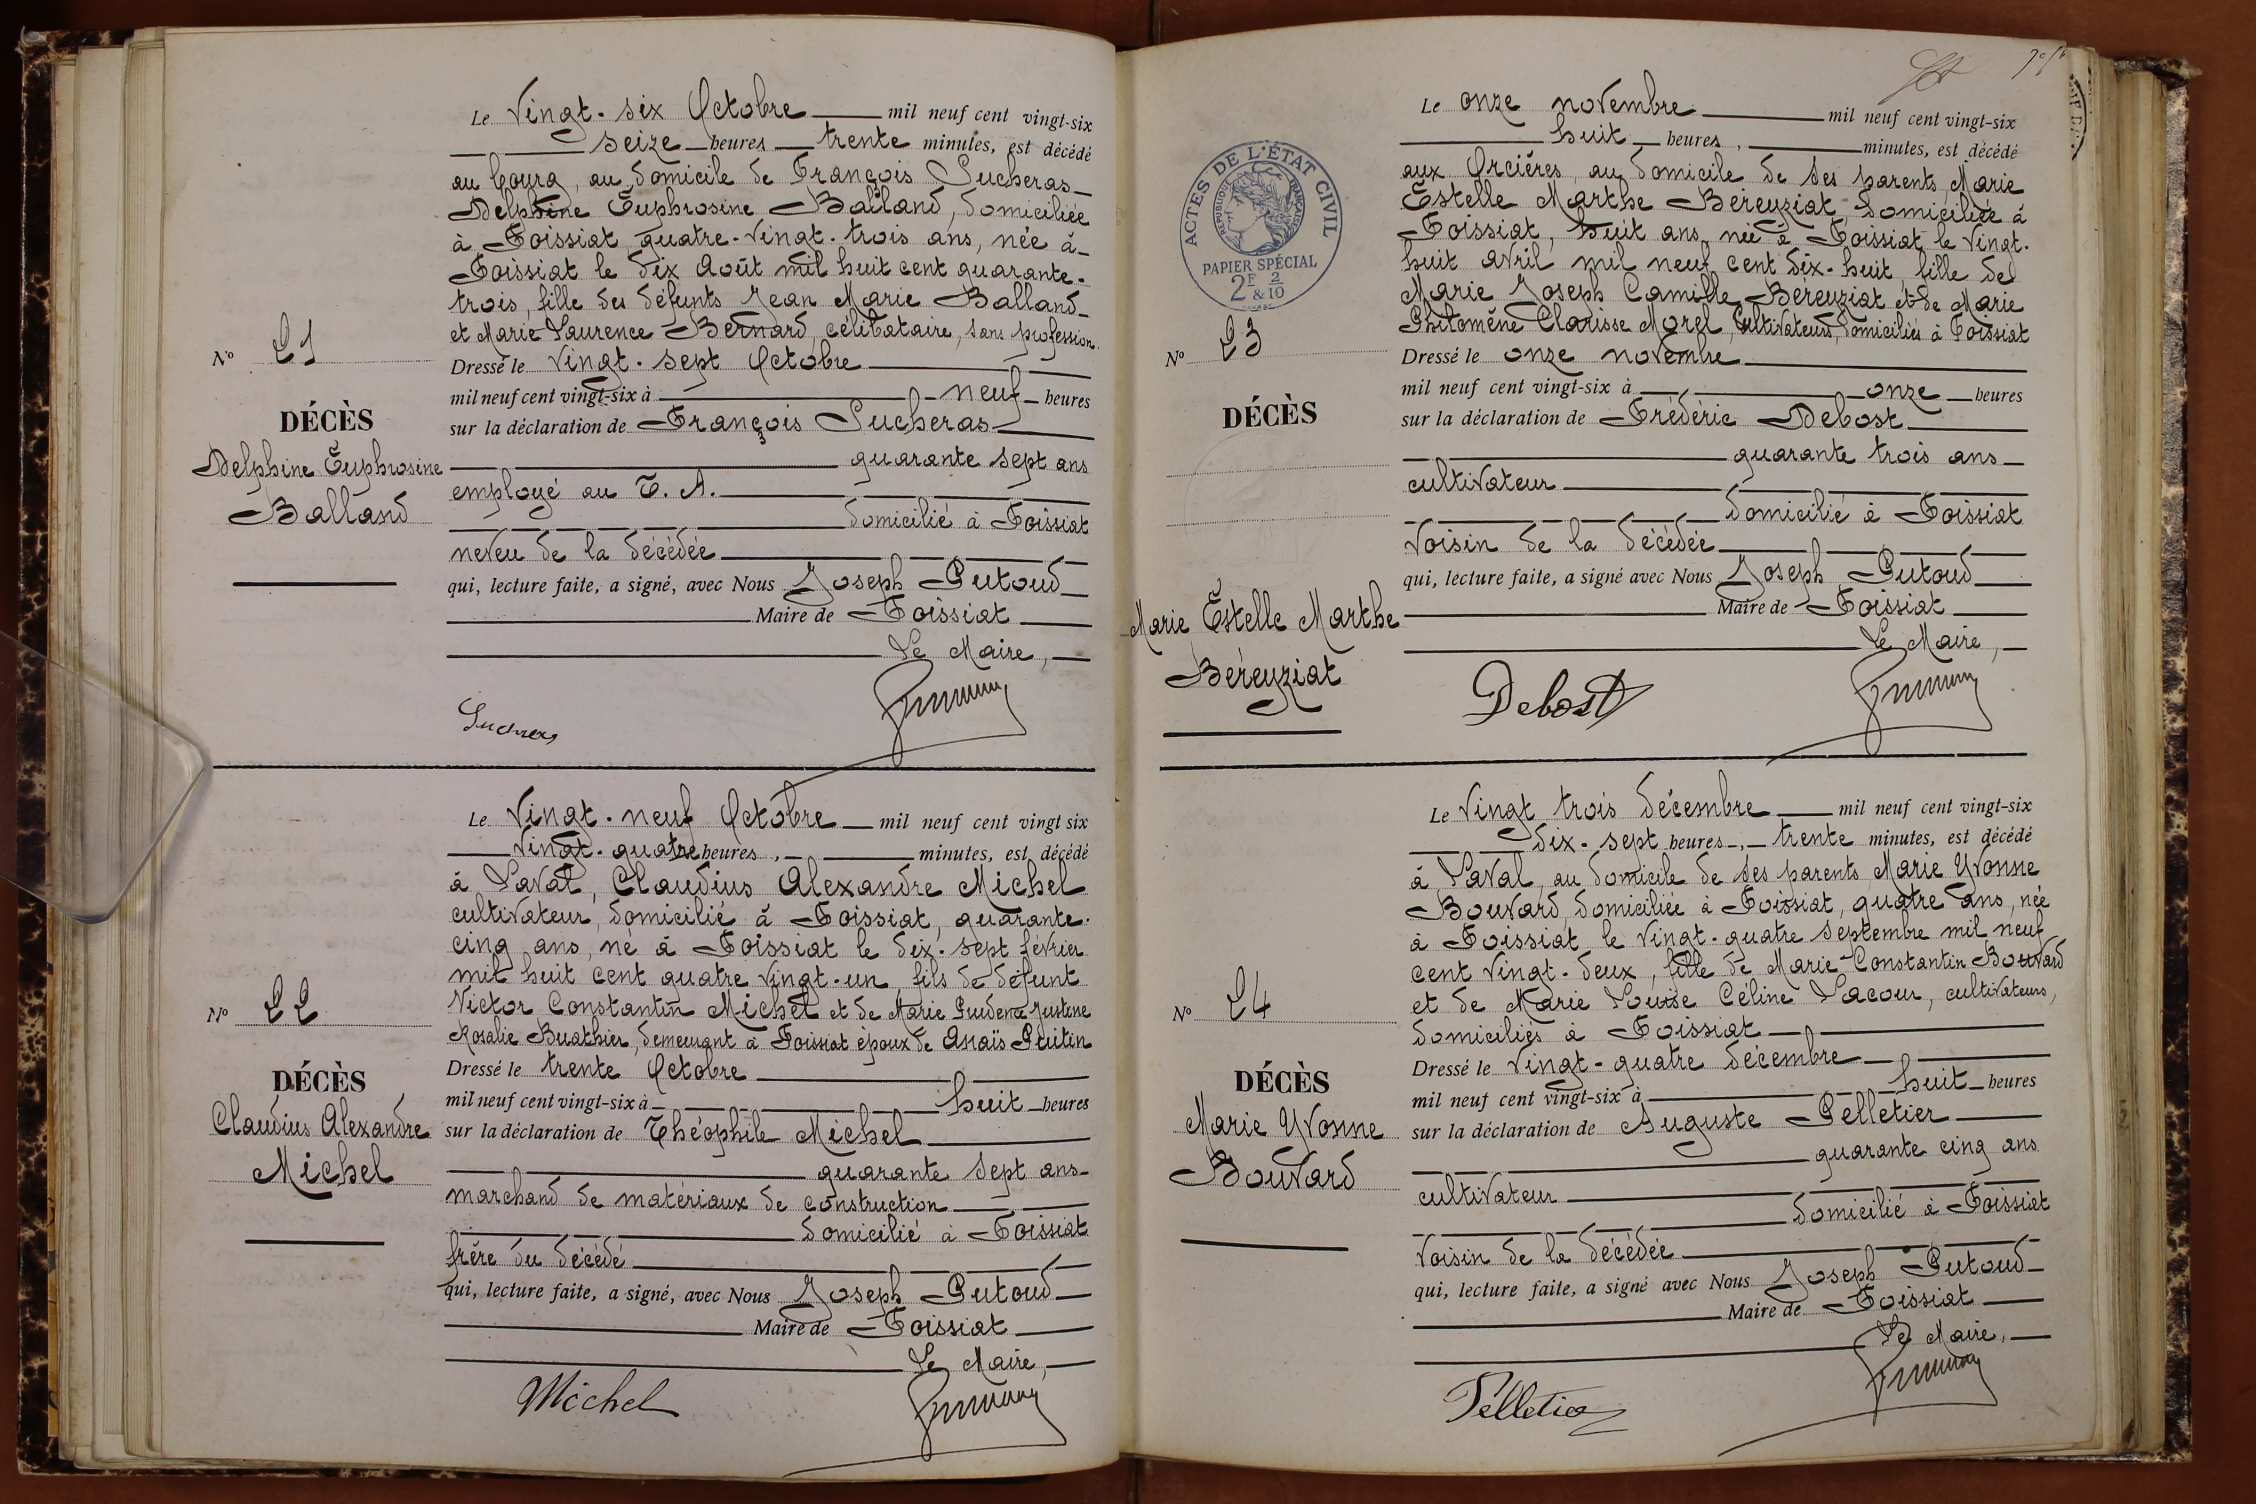 Le Vingt-six Octobre mil neuf cent vingt-six
seize heures trente minutes, est décédé
au bourg, au domicile de François Sucheras
Delphine Euphrosine Balland, domiciliée
à Foissiat, quatre-vingt-trois ans, née à
Foissiat le dix Août mil huit cent quarante-
trois, fille des défunts Jean Marie Balland
et Marie Laurence Bernard, célibataire, sans profession
Dressé le vingt-sept Octobre
mil neuf cent vingt-six à neuf heures
sur la déclaration de François Sucheras
quarante sept ans
employé au T. A.
domicilié à Foissiat
neveu de la décédée
qui, lecture faite, a signé, avec Nous Joseph Putoud
Maire de Foissiat
Le Maire,
No 21
DÉCÈS
Delphine Euphrosine
Balland
Le Vingt-neuf Octobre mil neuf cent vingt six
Vingt-quatre heures, minutes, est décédé
à Laval, Claudius Alexandre Michel
cultivateur, domicilié à Foissiat, quarante-
cinq ans, né à Foissiat le dix-sept février
mil huit cent quatre vingt-un, fils de défunt
Victor Constantin Michel et de Marie Prudence Justine
Rosalie Buathier, demeurant à Foissiat époux de Anaïs Putin
Dressé le trente Octobre
mil neuf cent vingt-six à huit heures
sur la déclaration de Théophile Michel
quarante sept ans
marchand de matériaux de construction
domicilié à Foissiat
frère du décédé
qui, lecture faite, a signé, avec Nous Joseph Putoud
Maire de Foissiat
Le Maire,
Michel
No 22
DÉCÈS
Claudius Alexandre
Michel
ACTES DE L'ÉTAT CIVIL
RÉPUBLIQUE FRANÇAISE
PAPIER SPÉCIAL
2F & 2/10
Le onze novembre mil neuf cent vingt-six
huit heures, minutes, est décédé
aux Orcières, au domicile de ses parents, Marie
Estelle Marthe Béreyziat domiciliée à
Foissiat, huit ans, née à Foissiat le vingt-
huit avril mil neuf cent dix-huit, fille de
Marie Joseph Camille Béreyziat et de Marie
Philomène Clarisse Morel, Cultivateurs, domiciliés à Foissiat
Dressé le onze novembre
mil neuf cent vingt-six à onze heures
sur la déclaration de Frédéric Debost
quarante trois ans
cultivateur
domicilié à Foissiat
Voisin de la décédée
qui, lecture faite, a signé avec Nous Joseph Putoud
Maire de Foissiat
Le Maire,
Debost
No 23
DÉCÈS
Marie Estelle Marthe
Béreyziat
Le Vingt trois décembre mil neuf cent vingt-six
dix-sept heures, trente minutes, est décédé
à Laval, au domicile de ses parents, Marie Yvonne
Bouvard, domiciliée à Foissiat, quatre ans, née
à Foissiat le vingt-quatre septembre mil neuf
cent vingt-deux, fille de Marie Constantin Bouvard
et de Marie Louise Céline Lacour, cultivateurs,
domiciliés à Foissiat
Dressé le vingt-quatre décembre
mil neuf cent vingt-six à huit heures
sur la déclaration de Auguste Pelletier
quarante cinq ans
cultivateur
domicilié à Foissiat
Voisin de la décédée
qui, lecture faite, a signé avec Nous Joseph Putoud
Maire de Foissiat
Le Maire,
Pelletier
No 24
DÉCÈS
Marie Yvonne
Bouvard